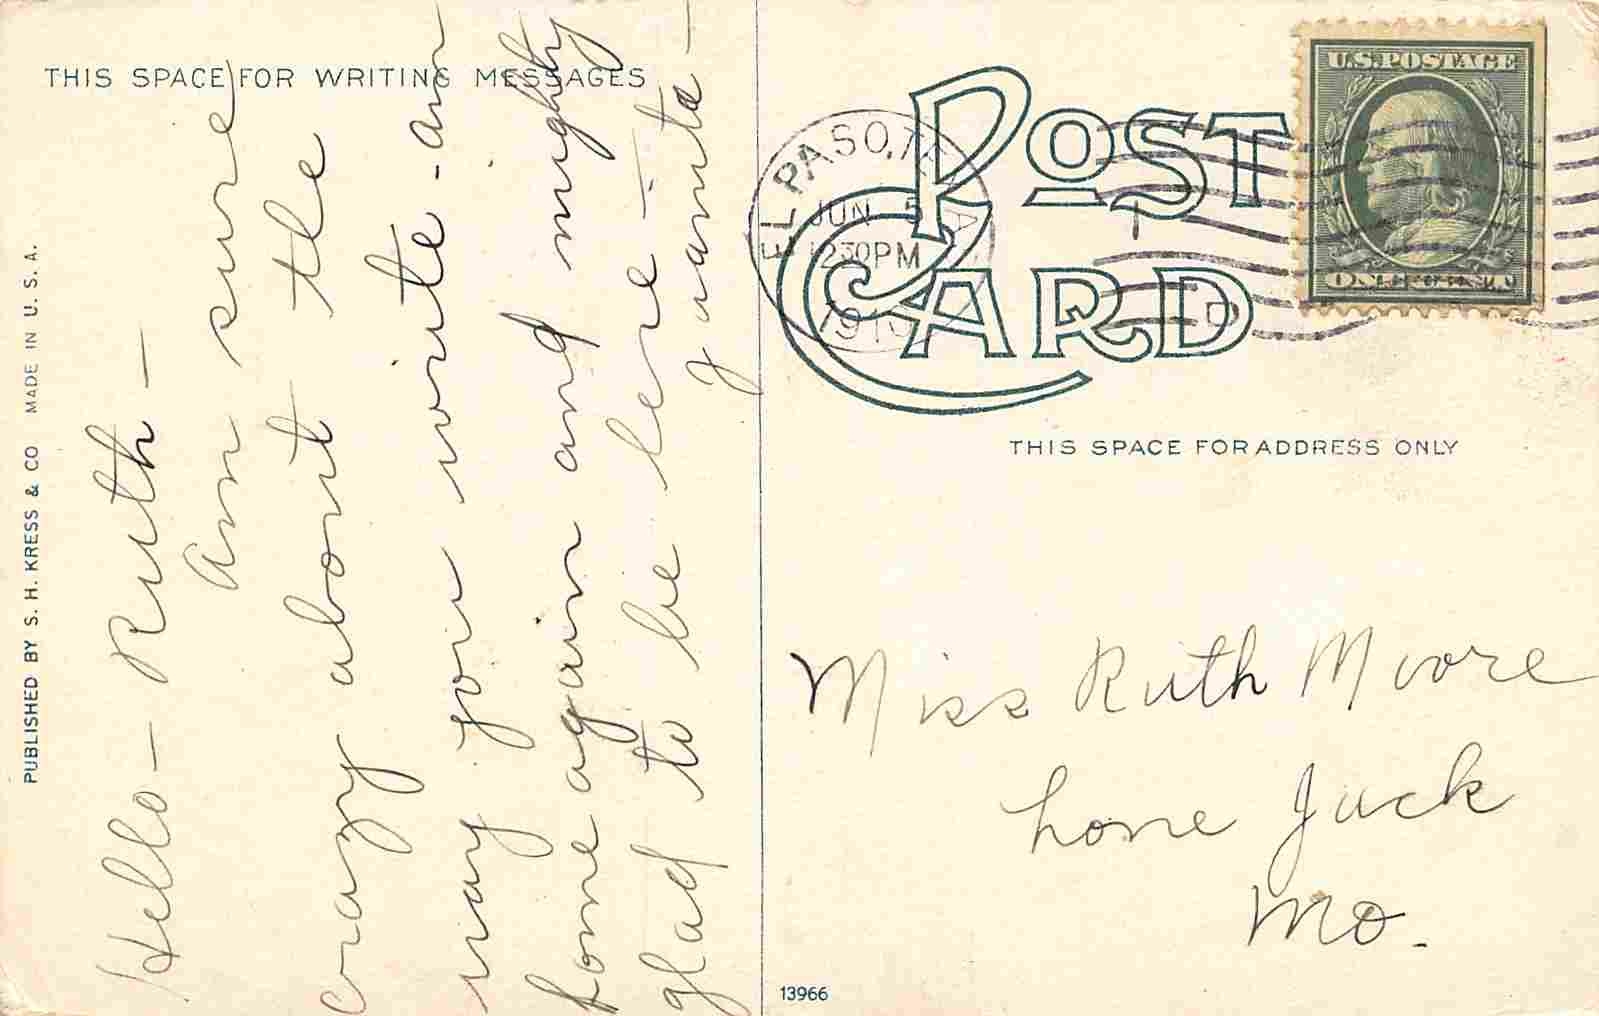 THIS SPACE FOR WRITING MESSAGES
Hello - Ruth -
Am sure
crazy about the
way you write - am
home again and mighty
glad to be here -
Juanita -
PUBLISHED BY S. H. KRESS & CO MADE IN U. S. A.
POST CARD
EL PASO, TEX
JUN 5
12 30 PM
U.S. POSTAGE
THIS SPACE FOR ADDRESS ONLY
Miss Ruth Moore
Lone Jack
Mo.
13966